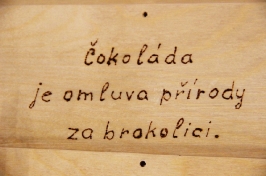 Čokoláda
je omluva přírody
za brokolici.